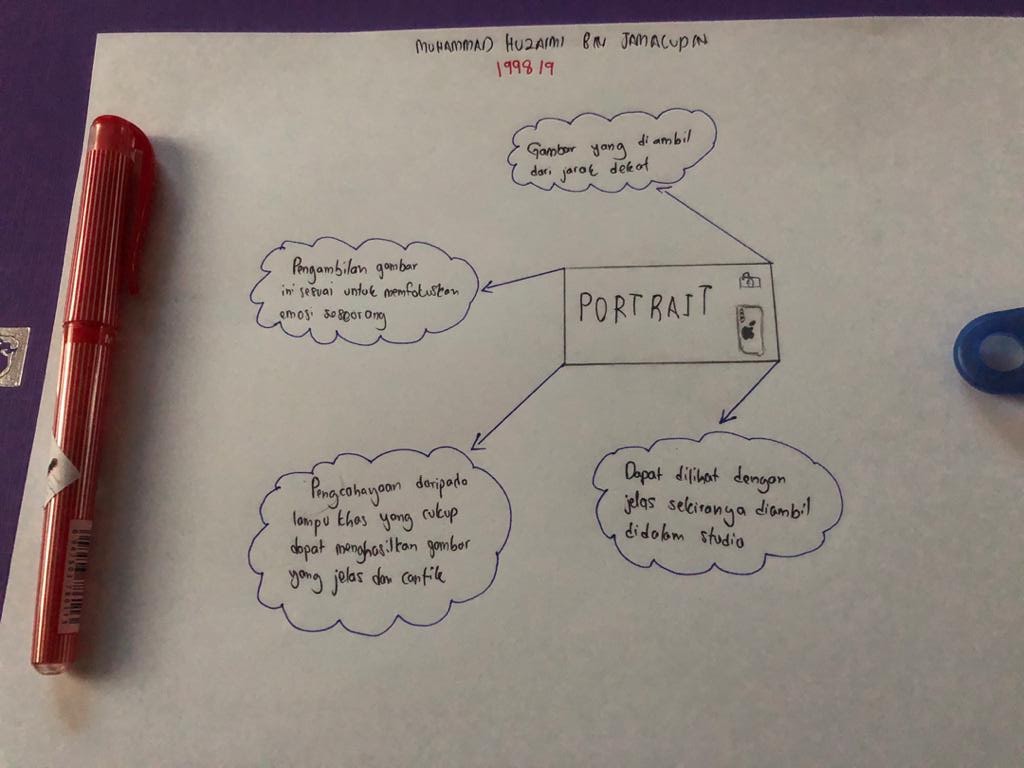 MUHAMMAD HUZAIMI BIN JAMALUDIN
199819
Gambar yang diambil
dari jarak dekat
Pengambilan gambar
ini sesuai untuk memfokuskan
emosi seseorang
PORTRAIT
Pengcahayaan daripada
lampu khas yang cukup
dapat menghasilkan gambar
yang jelas dan cantik
Dapat dilihat dengan
jelas sekiranya diambil
didalam studio